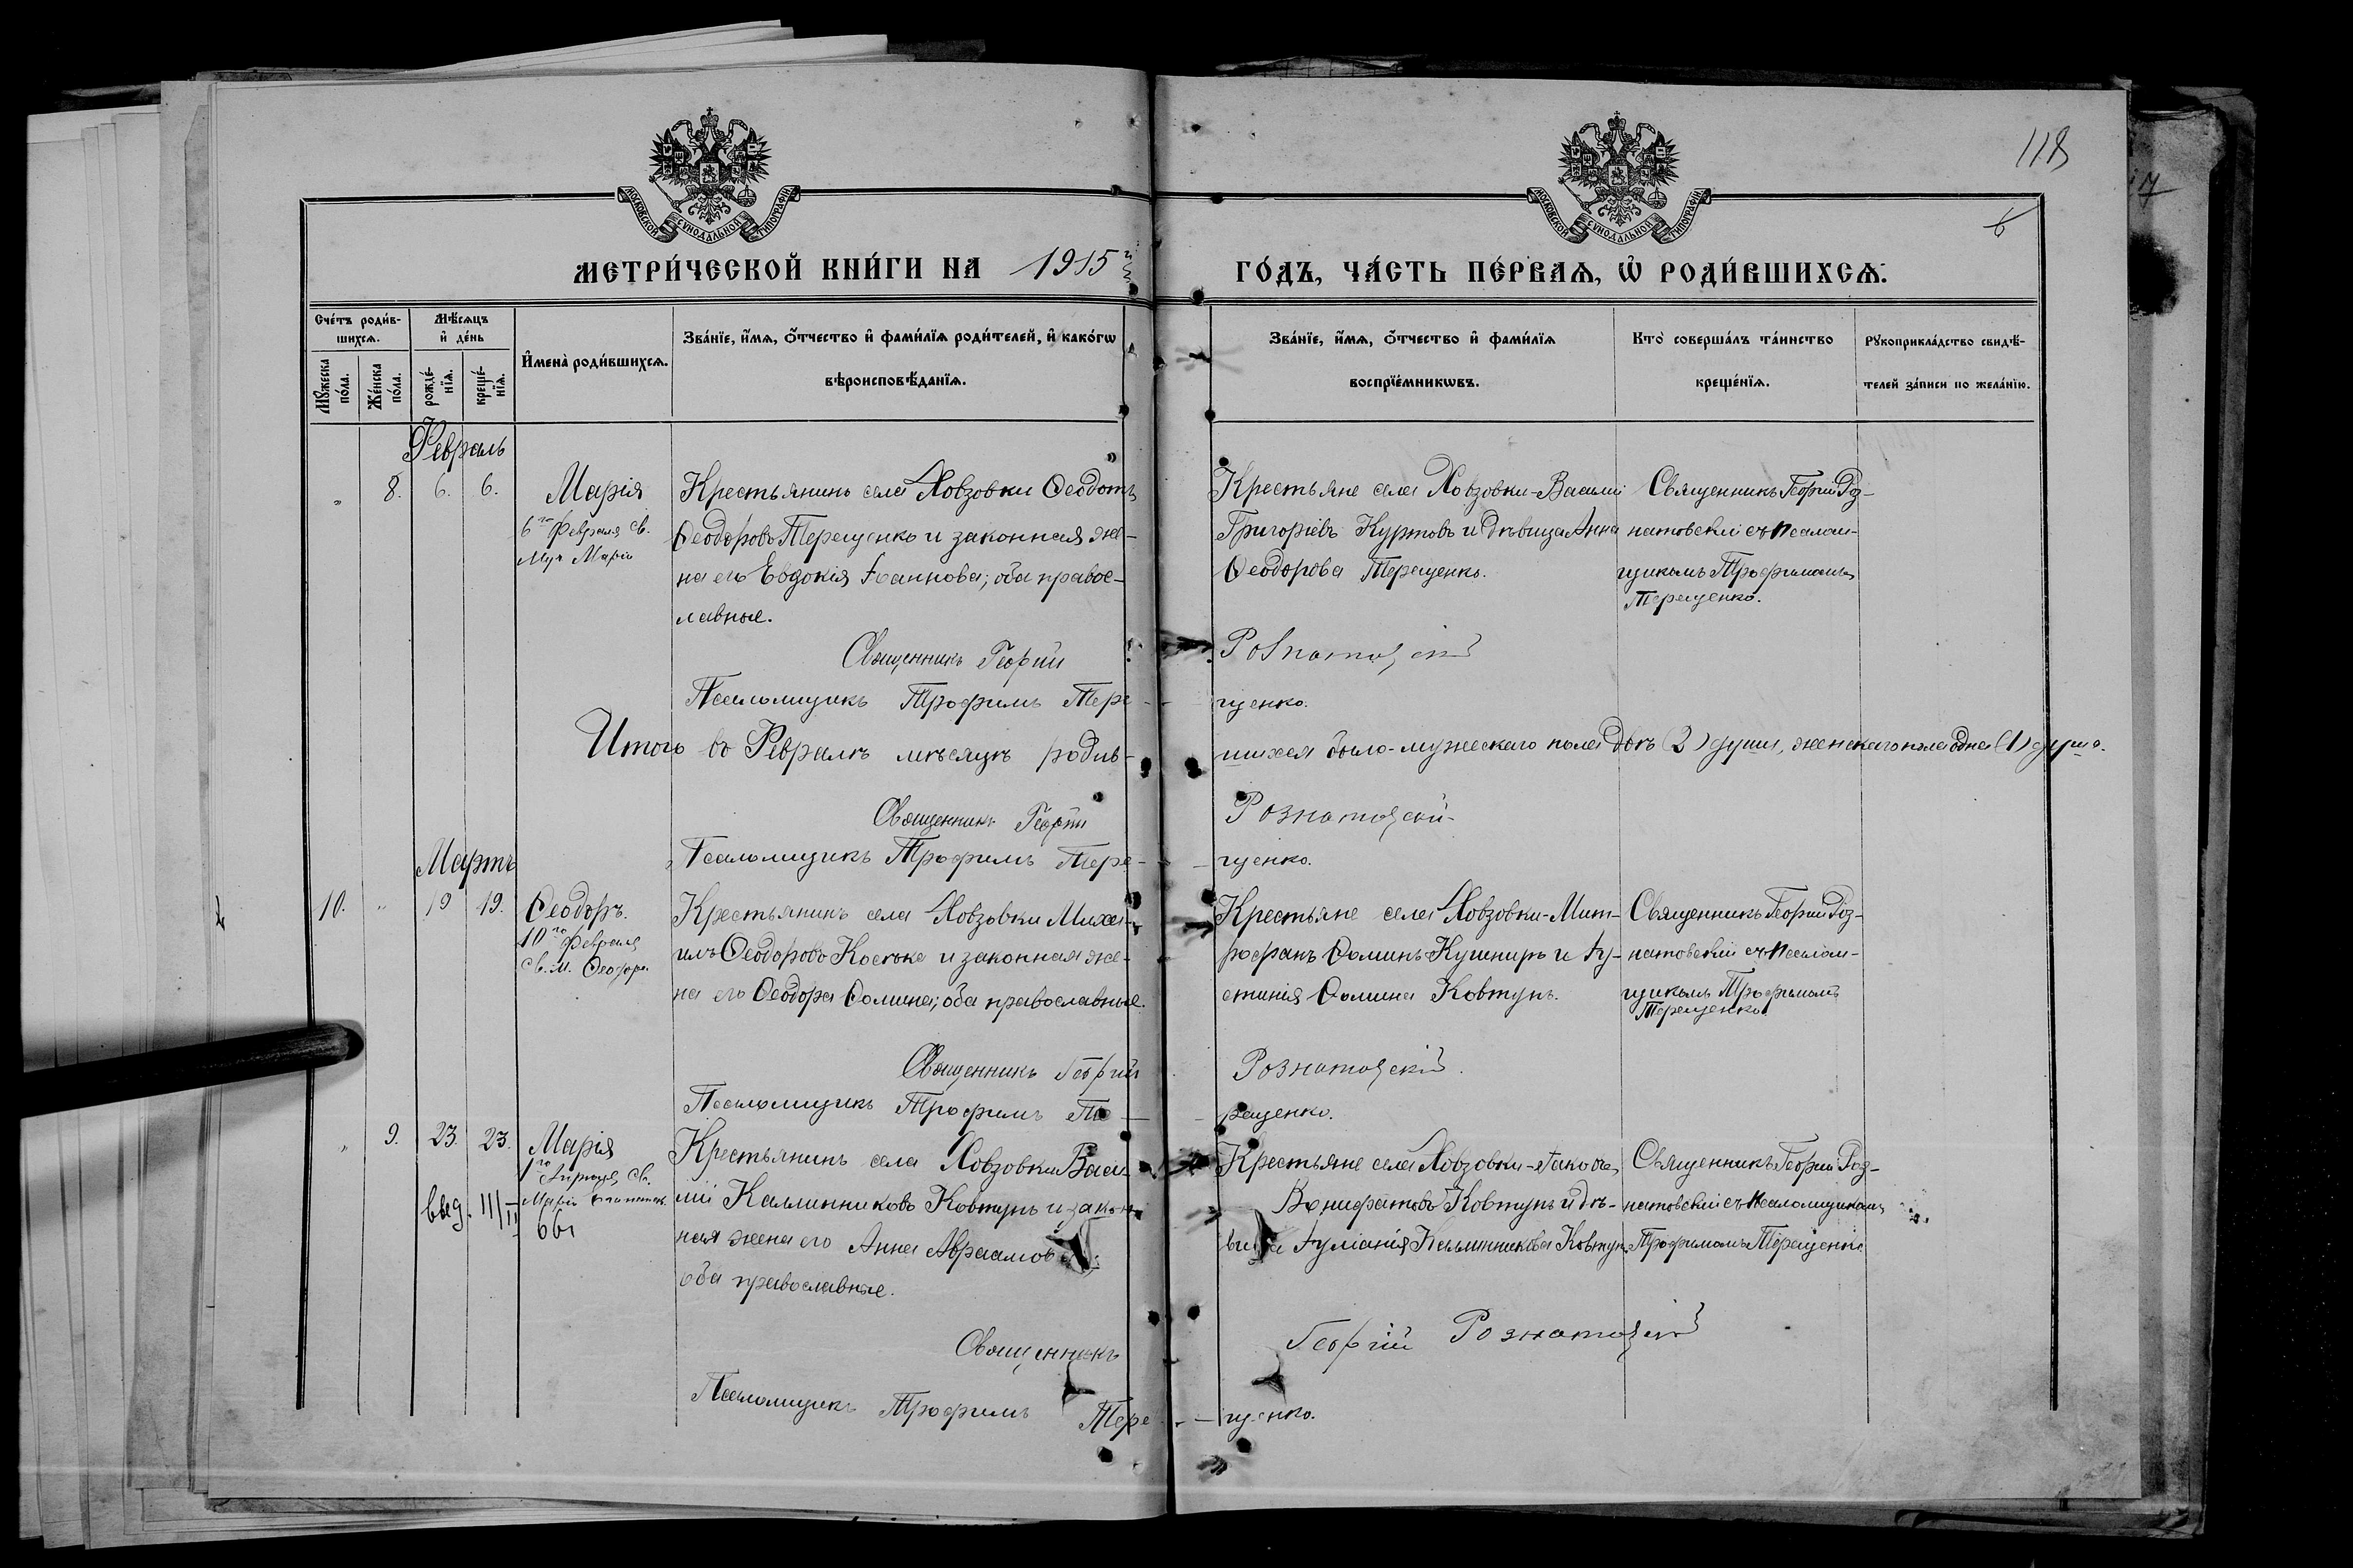 118
7
6
МОСКОВСКОЙ СУНОДАЛЬНОЙ ТИПОГРАФІИ
МОСКОВСКОЙ СУНОДАЛЬНОЙ ТИПОГРАФІИ
МЕТРИ́ЧЕСКОЙ КНИ́ГИ НА 1915 ГО́ДЪ, ЧА́СТЬ ПЕ́РВАѦ, Ѡ҆ РОДИ́ВШИХСѦ.
Сче́тъ роди́в-
шихсѧ.
Мꙋ́жеска по́ла.
Же́нска по́ла.
Мѣ́сѧцъ и҆ де́нь
рожде́-
нїѧ.
креще́-
нїѧ.
И҆мена̀ роди́вшихсѧ.
Зва́нїе, и҆́мѧ, ѻ҆́тчество и҆ фами́лїѧ роди́телей, и҆ како́гѡ
вѣроисповѣ́данїѧ.
Зва́нїе, и҆́мѧ, ѻ҆́тчество и҆ фами́лїѧ
воспрїе́мникѡвъ.
Кто̀ соверша́лъ та́инство
креще́нїѧ.
Рꙋкоприкла́дство свидѣ́-
телей за́писи по жела́нїю.
Февраль
„ 8. 6. 6. Марія
6го Февраля св.
Муч Маріи
Крестьянинъ села Ховзовки Ѳеодотъ
Ѳеодоровъ Терещенко и законная же-
на его Евдокія Іоаннова; оба правос-
лавные.
Крестьяне села Ховзовки-Василій
Григоріевъ Куртовъ и дѣвица Анна
Ѳеодорова Терещенко.
Священникъ Георгій Роз-
натовскій съ псалом-
щикомъ Трофимомъ
Терещенко.
Священникъ Георгій Рознатовскій
Псаломщикъ Трофимъ Тере-щенко.
Итого въ Февралѣ мѣсяцѣ родив-шихся было-мужескаго пола двѣ (2) души, женскаго пола одна (1) душа.
Священникъ Георгій Рознатовскій
Псаломщикъ Трофимъ Тере-щенко.
Мартъ
10. „ 19 19. Ѳеодоръ.
10го Февраля
св. М. Ѳеодора
Крестьянинъ села Ховзовки Миха-
илъ Ѳеодоровъ Костюкъ и законная же-
на его Ѳеодора Ѳомина; оба православные.
Крестьяне села Ховзовки-Мит-
рофанъ Ѳоминъ Кушниръ и Іу-
стинія Ѳомина Ковтунъ.
Священникъ Георгій Роз-
натовскій съ псалом-
щикомъ Трофимомъ
Терещенко.
Священникъ Георгій Рознатовскій.
Псаломщикъ Трофимъ Те-рещенко.
„ 9. 23. 23. Марія
1го Апрѣля св.
Маріи Египетск.
Крестьянинъ села Ховзовки Васи-
лій Калинниковъ Ковтунъ и закон-
ная жена его Анна Авраамова;
оба православные.
Крестьяне села Ховзовки-Іаковъ
Вонифатовъ Ковтунъ и дѣ-
вица Іуліанія Калинникова Ковтунъ.
Священникъ Георгій Роз-
натовскій съ псаломщикомъ
Трофимомъ Терещенко
Священникъ Георгій Рознатовскій
Псаломщикъ Трофимъ Тере-щенко.